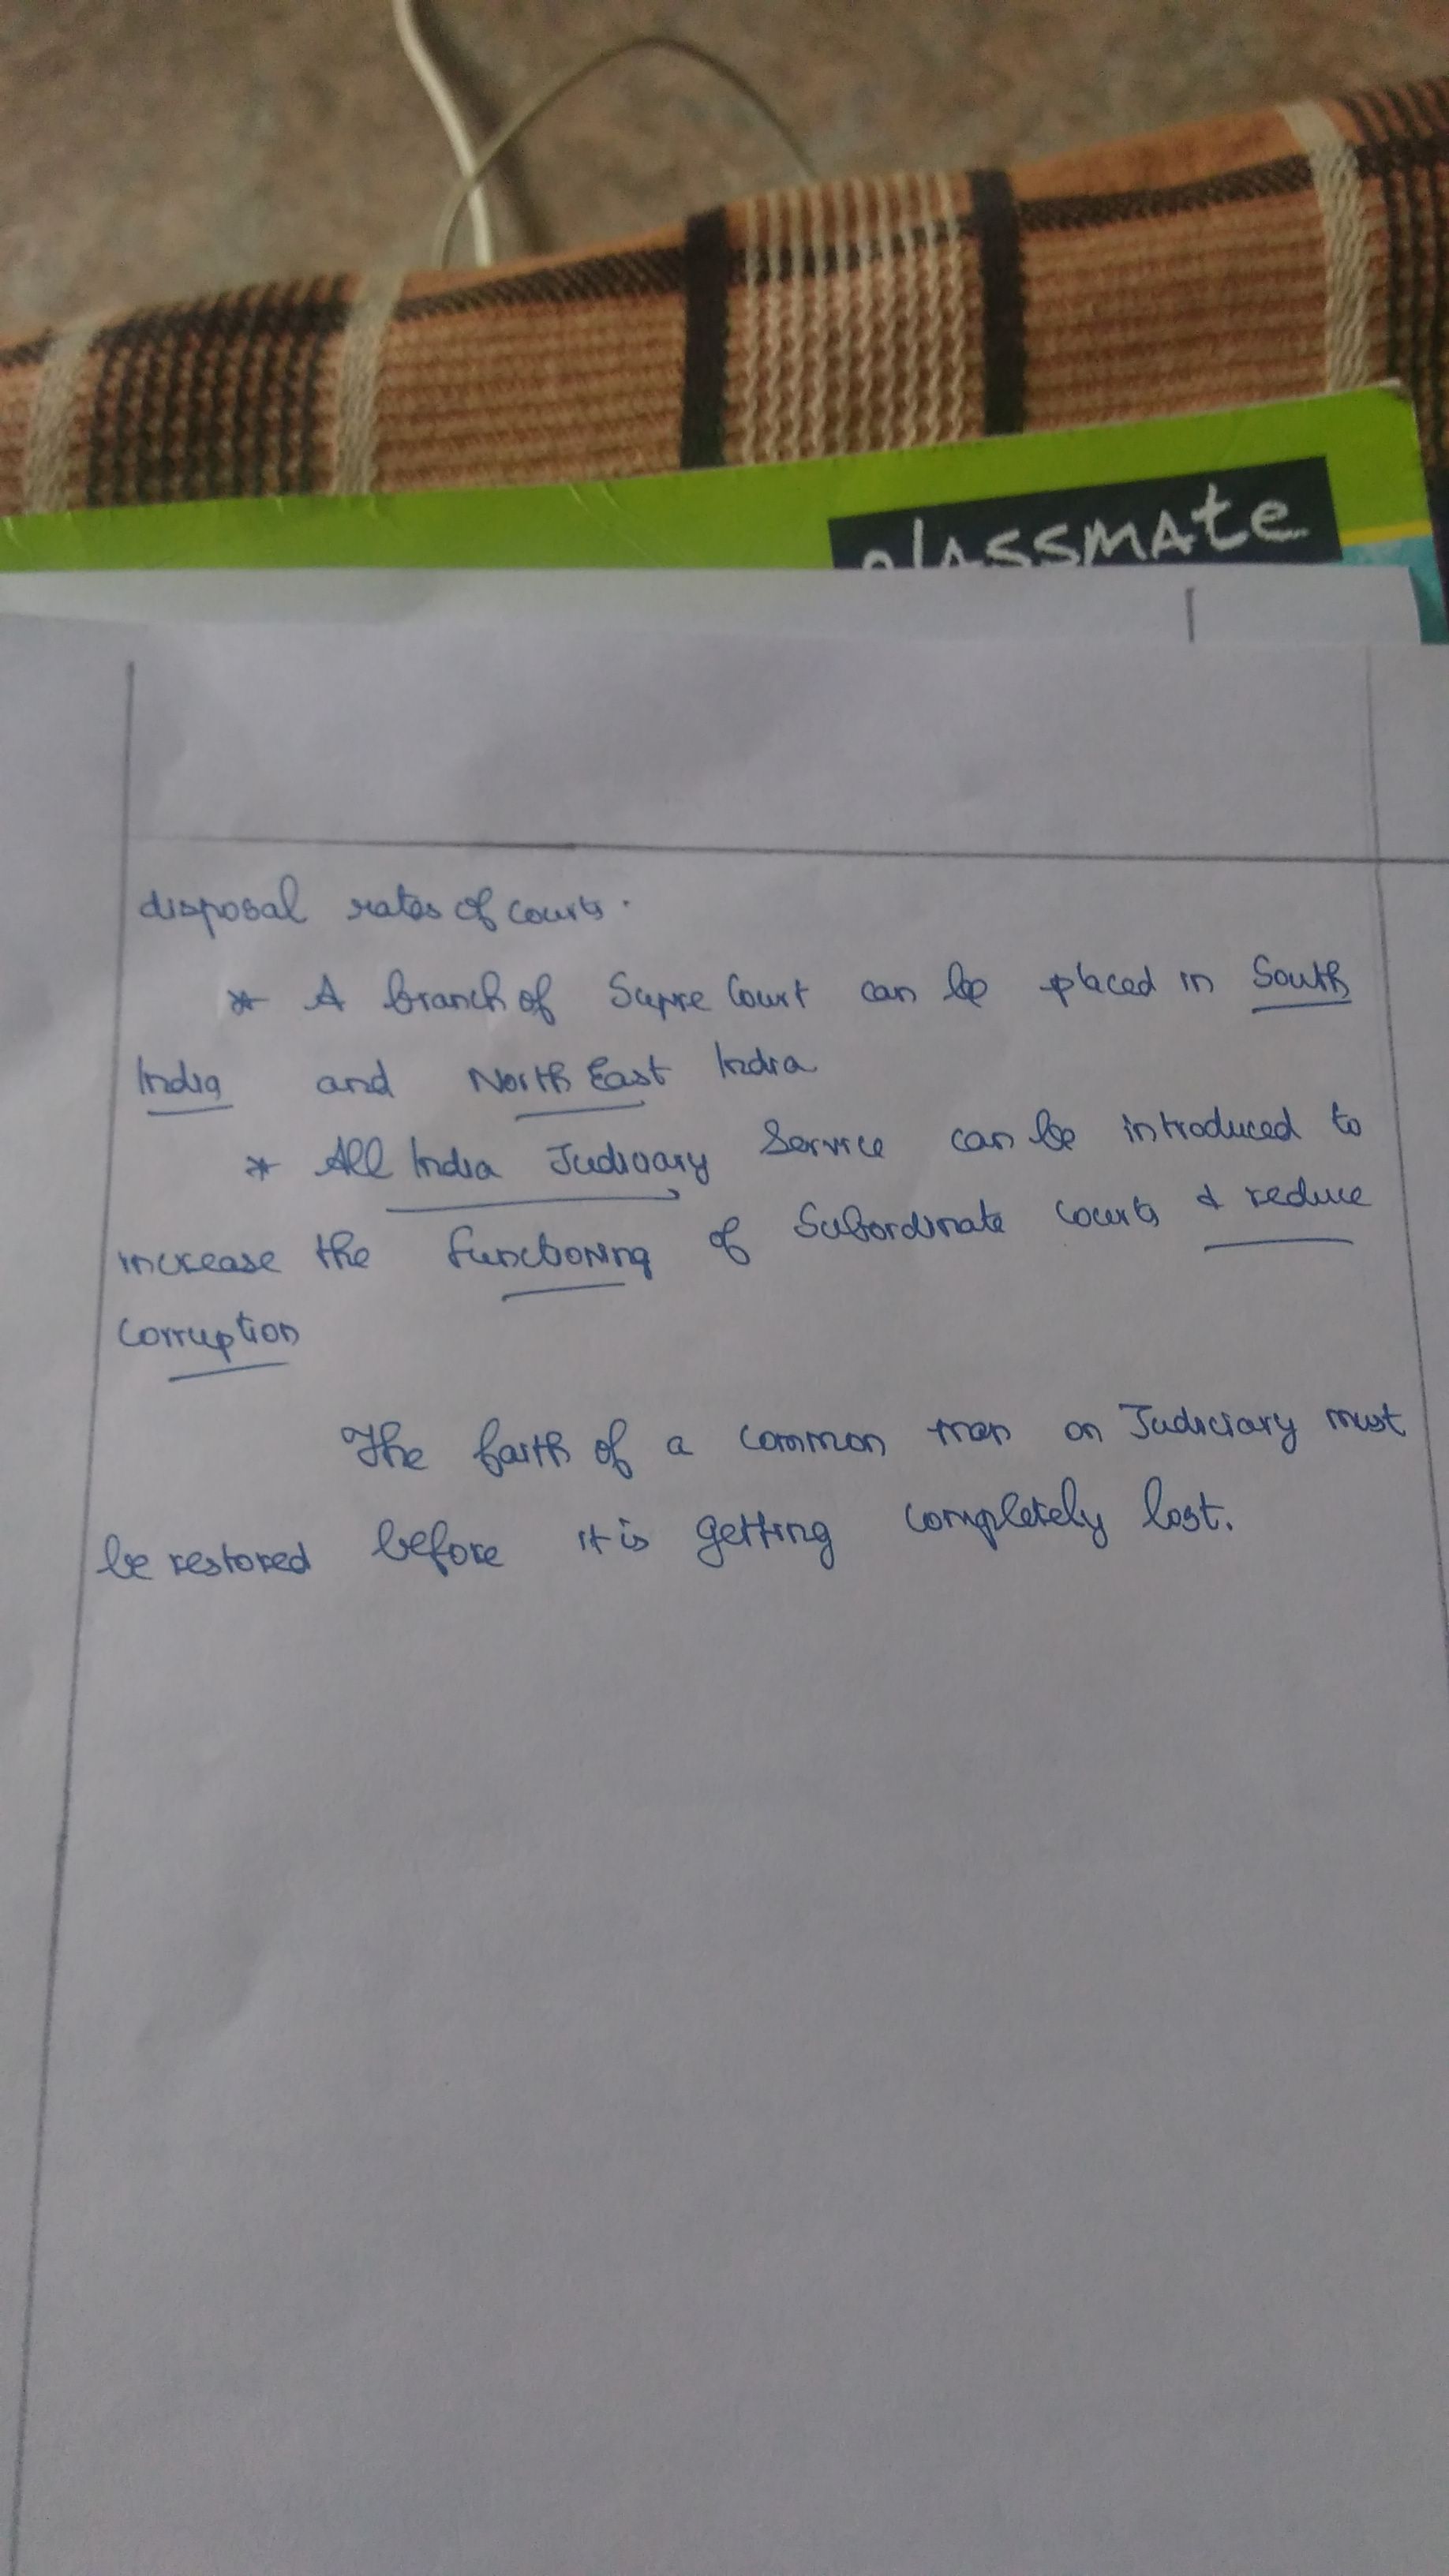 classmate
disposal rates of courts.
* A branch of Supre Court can be placed in South
India and North East India
* All India Judiciary Service can be introduced to
increase the functioning of Subordinate courts & reduce
corruption
The faith of a common man on Judiciary must
be restored before it is getting completely lost.